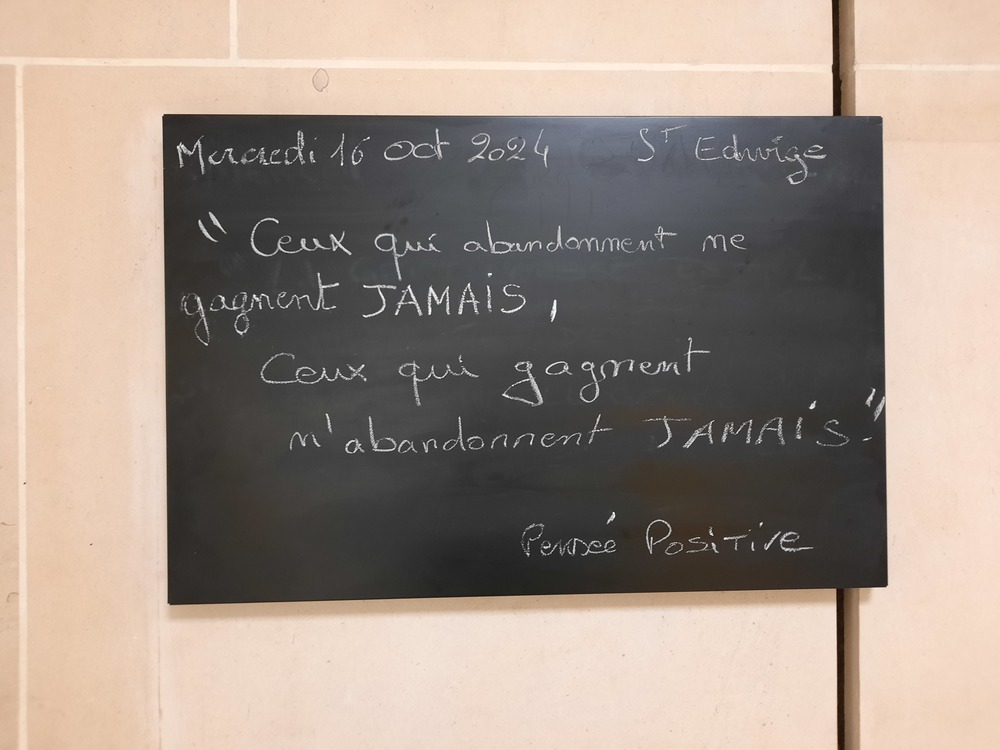 Mercredi 16 Oct 2024 St Edwige
"Ceux qui abandonnent ne
gagnent JAMAIS,
Ceux qui gagnent
n'abandonnent JAMAIS."
Pensée Positive